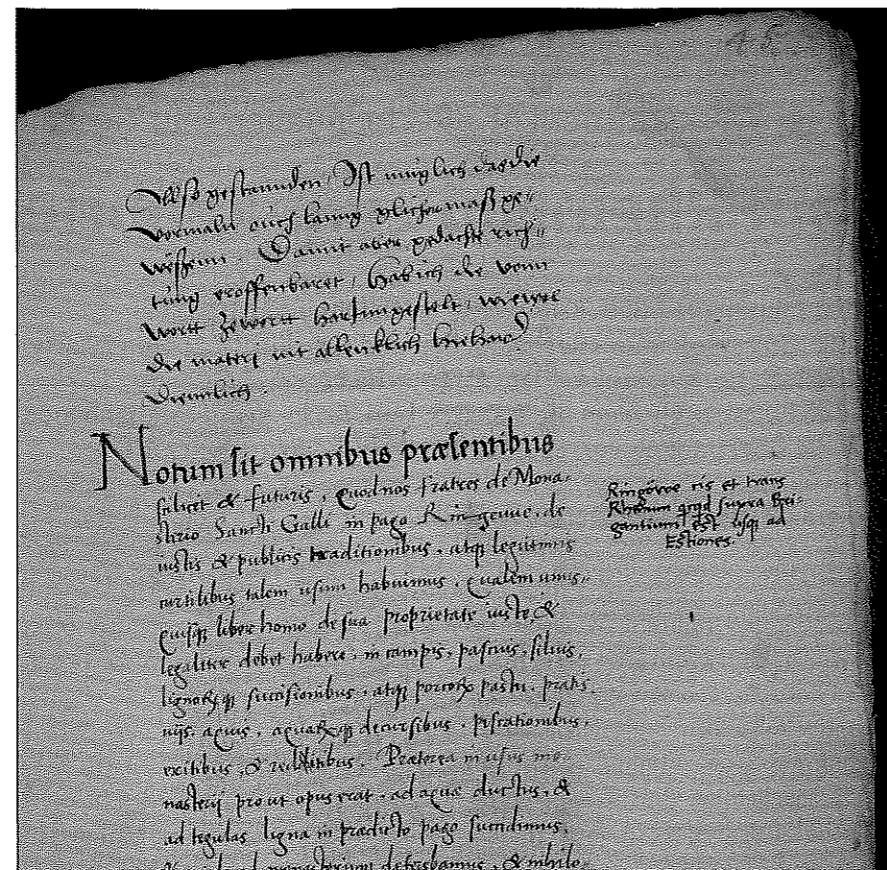 45
Also gestannden, Ist muglich das die
vormaln ouch lanng gelichermaß ge-
wësenn. Damit aber gedachte rich-
tung eroffenbaret, hab ich die vonn
wortt zewortt harInngestelt, wiewol
die matery nit allenklich hiehar
diennlich.
Notum sit omnibus præsentibus
scilicet & futuris, quod nos fratres de Mona-
sterio Sancti Galli in pago Ringouue, de
iustis & publicis traditionibus, atq legitimis
curtilibus talem usum habuimus, qualem unus-
quisq liber homo de sua proprietate iuste &
legaliter debet habere, in campis, pascuis, siluis,
lignorumq succisionibus, atq porcorum pastu, pratis,
uijs, aquis, aquarumq decursibus, piscationibus,
exitibus, & reditibus. Præterea in usus mo-
nasterij prout opus erat, ad aquæ ductus, &
ad tegulas ligna in prædicto pago succidimus,
& monasterium & nihilo-
Ringowe cis et trans
Rhenum quod supra Bri-
gantium est usq ad
Estiones.